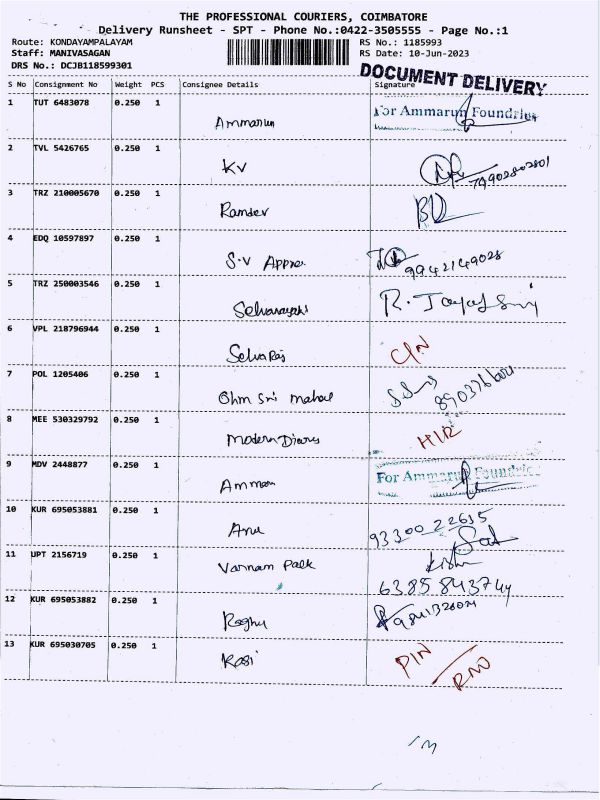 THE PROFESSIONAL COURIERS, COIMBATORE
Delivery Runsheet - SPT - Phone No.:0422-3505555 - Page No.:1
Route: KONDAYAMPALAYAM RS No.: 1185993
Staff: MANIVASAGAN RS Date: 10-Jun-2023
DRS No.: DCJB118599301
DOCUMENT DELIVERY
S No Consignment No Weight PCS Consignee Details Signature
1 TUT 6483078 0.250 1
For Ammarun Foundries
Ammarun
2 TVL 5426765 0.250 1
KV
3 TRZ 210005670 0.250 1
Ramdev
4 EDQ 10597897 0.250 1
S.V 9942149028
5 TRZ 250003546 0.250 1
R.
6 VPL 218796944 0.250 1
Selvaraj C/N
7 POL 1205406 0.250 1
Ohm Sri Mahal
8 MEE 530329792 0.250 1
Modern Diarys
9 MDV 2448877 0.250 1
For Ammarun Foundries
Amman
10 KUR 695053881 0.250 1
Anu 93300 22615
11 UPT 2156719 0.250 1
Varnam Palk
12 KUR 695053882 0.250 1
Raghu
13 KUR 695030705 0.250 1
Kasi PIN